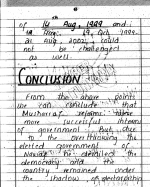 of 14 Aug, 1999 and
12 Nov. 19 Oct, 1999
as Aug, 2002, could
not be challenged
as well.
CONCLUSION
From the above points
we can conclude that
Musharraf
successful
of government. But due
to the overthrowing the
elected government of
Nawaz he derailed the
democracy and the
country remained under
the shadow of dictatorship